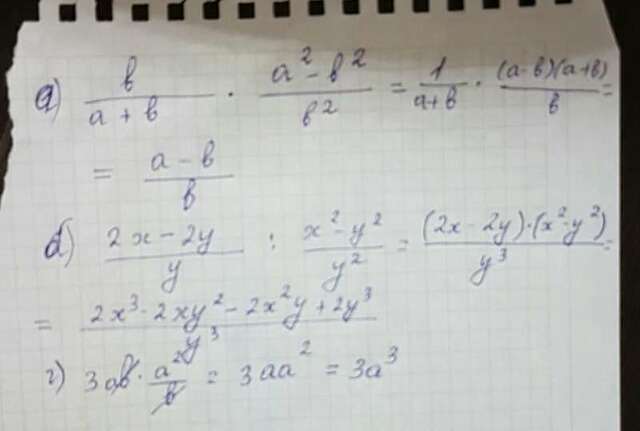 а) в/(a + в) · (a² - в²)/в² = 1/(a+в) · ((a-в)(a+в))/в =
= (a - в)/в
б) (2x - 2y)/y : (x² - y²)/y² = ((2x - 2y)·(x² - y²))/y³ =
= (2x³ - 2xy² - 2x²y + 2y³)/y³
г) 3aв · a²/в = 3aa² = 3a³